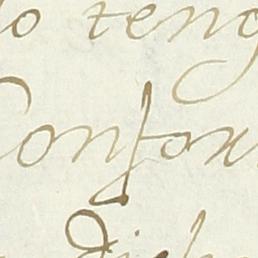 lo teng
Confor
Dich